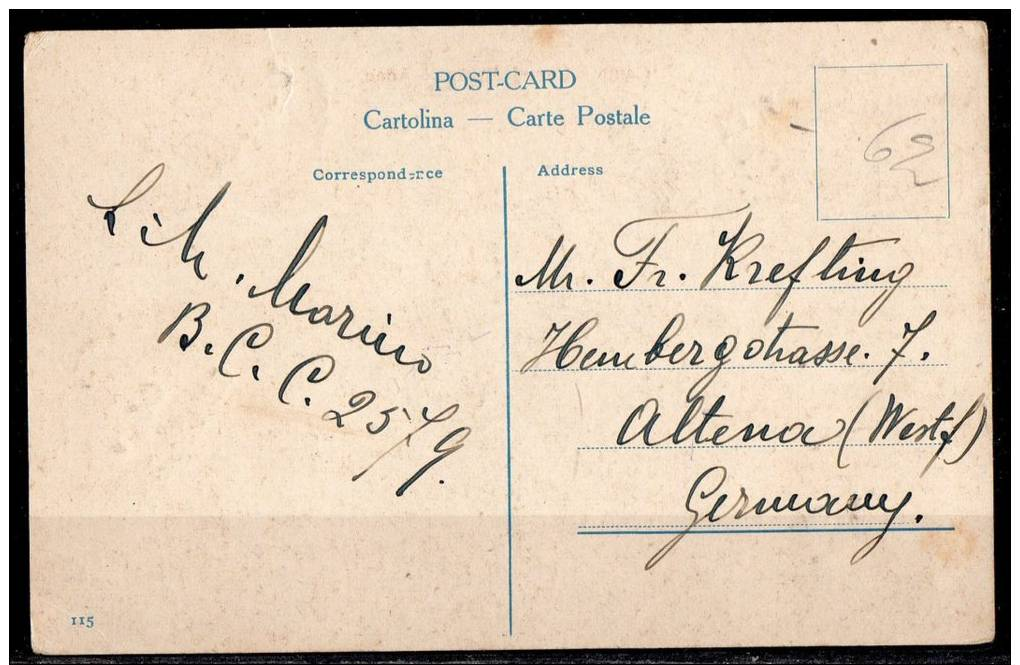 POST-CARD
Cartolina — Carte Postale
Correspondence
Address
62
Marino
B. C. C. 2579.
Mr. Fr. Krefting
Hembergstrasse. 7.
Altena (Westf)
Germany.
115